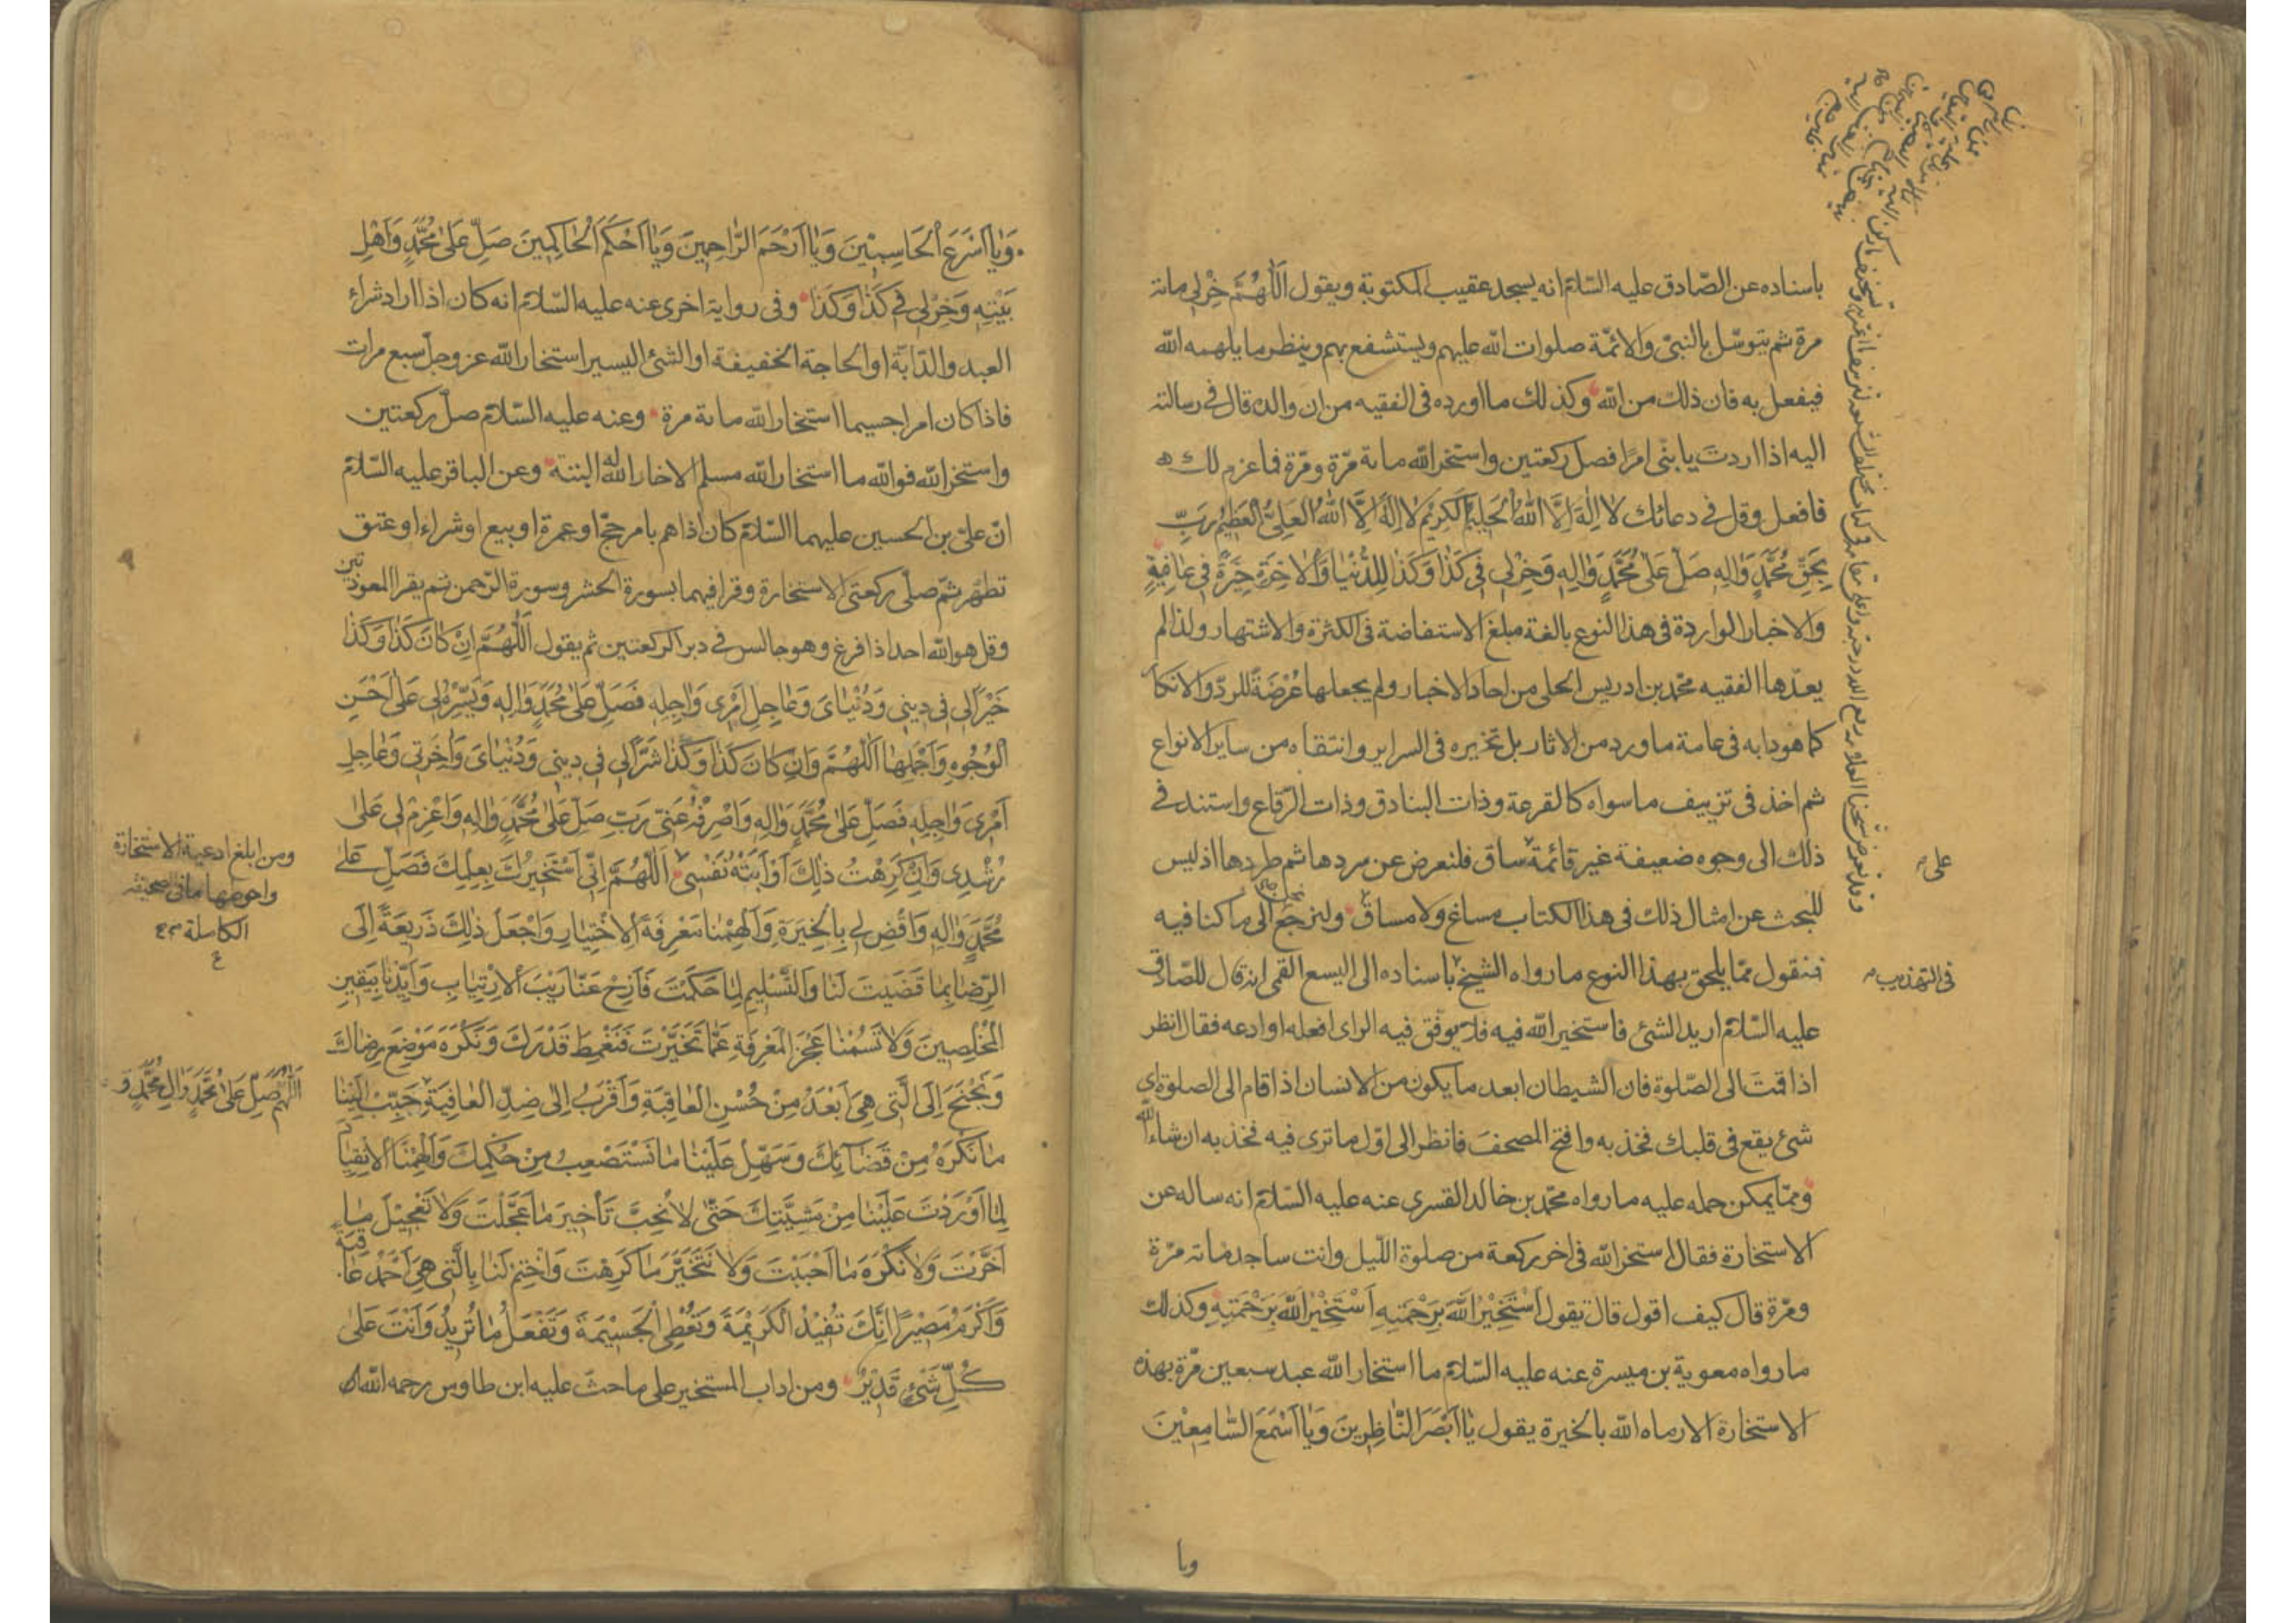 باسناده عن الصّادق عليه السّلام انه يسجد عقيب المكتوبة ويقول اَللّٰهُمَّ خِرْلى مائة
مرة ثم يتوسّل بالنبىّ والائمّة صلوات الله عليهم ويستشفع بهم وينظر ما يلهمه الله
فيفعل به فان ذلك من الله وكذلك ما اورده فى الفقيه من ان والده قال فى رسالته
اليه اذا اردتَ يا بنّى امرًا فصل ركعتين واستخر الله مائة مرّة ومرّة فما عزم لك
فافعل وقل فى دعائك لا اِلٰهَ اِلَّا اللهُ الْحَلِيمُ الْكَرِيْمُ لا اِلٰهَ اِلَّا اللهُ الْعَلِىُّ الْعَظِيْمُ رَبِّ
بِحَقِّ مُحَمَّدٍ وَاٰلِهِ صَلِّ عَلٰى مُحَمَّدٍ وَاٰلِهِ وَخِرْلِى فِى كَذَا وَكَذَا لِلدُّنْيَا وَالْاٰخِرَةِ خِيَرَةً فِى عَافِيَةٍ
والاخبار الواردة فى هذا النوع بالغة مبلغ الاستفاضة فى الكثرة والاشتهار ولذا لم
يعدّها الفقيه محمّد بن ادريس الحلى من احاد الاخبار ولم يجعلها عُرْضَةً للردّ والانكار
كما هو دابه فى عامة ما ورد من الاثار بل تخيره فى السراير وانتقاه من ساير الانواع
ثم اخذ فى تزييف ما سواه كالقرعة وذات البنادق وذات الرّقاع واستند فى
ذلك الى وجوه ضعيفة غير قائمة ساق فلنعرض عن سردها ثم طردها اذ ليس
على
للبحث عن امثال ذلك فى هذا الكتاب مساغ ولا مساق ولنرجع الى ما كنا فيه
فنقول ممّا يلحق بهذا النوع ما رواه الشيخ باسناده الى اليسع القمى انه قال للصّادق
فى التهذيب
عليه السّلام اريد الشئ فاستخير الله فيه فلا يوفّق فيه الراى افعله او ادعه فقال انظر
اذا قمتَ الى الصّلوة فان الشيطان ابعد ما يكون من الانسان اذا قام الى الصلوة اى
شئ يقع فى قلبك فخذ به وافتح المصحف فانظر الى اوّل ما ترى فيه فخذ به ان شاء الله
وممّا يمكن حمله عليه ما رواه محمّد بن خالد القسرى عنه عليه السّلام انه ساله عن
الاستخارة فقال استخر الله فى اخر ركعة من صلوة اللّيل وانت ساجد مائة مرّة
ومرّة قال كيف اقول قال تقول اَسْتَخِيْرُ اللهَ بِرَحْمَتِهِ اَسْتَخِيْرُ اللهَ بِرَحْمَتِهِ وكذلك
ما رواه معوية بن ميسرة عنه عليه السّلام ما استخار الله عبد سبعين مرّة بهذه
الاستخارة الا رماه الله بالخيرة يقول يَا اَبْصَرَ النَّاظِرِينَ وَيَا اَسْمَعَ السَّامِعِيْنَ
ويا
وَيَا اَسْرَعَ الْحَاسِبِيْنَ وَيَا اَرْحَمَ الرَّاحِمِينَ وَيَا اَحْكَمَ الْحَاكِمِينَ صَلِّ عَلٰى مُحَمَّدٍ وَاَهْلِ
بَيْتِهِ وَخِرْلِى فِى كَذَا وَكَذَا وفى رواية اخرى عنه عليه السّلام انه كان اذا اراد شراء
العبد والدّابّة او الحاجة الخفيفة او الشئ اليسير استخار الله عز وجلّ سبع مرات
فاذا كان امرا جسيما استخار الله مائة مرة وعنه عليه السّلام صلّ ركعتين
واستخر الله فوالله ما استخار الله مسلم الا خار الله له البتة وعن الباقر عليه السّلام
انّ علىّ بن الحسين عليهما السّلام كان اذا هم بامر حجّ او عمرة او بيع او شراء او عتق
تطهّر ثمّ صلّى ركعتى الاستخارة وقرا فيهما بسورة الحشر وسورة الرّحمن ثم يقرا المعوذتين
وقل هو الله احد اذا فرغ وهو جالس فى دبر الركعتين ثم يقول اَللّٰهُمَّ اِنْ كَانَ كَذَا وَكَذَا
خَيْرًا لِى فِى دِينِى وَدُنْيَاىَ وَعَاجِلِ اَمْرِى وَاٰجِلِهِ فَصَلِّ عَلٰى مُحَمَّدٍ وَاٰلِهِ وَيَسِّرْهُ لِى عَلٰى اَحْسَنِ
الْوُجُوهِ وَاَجْمَلِهَا اَللّٰهُمَّ وَاِنْ كَانَ كَذَا وَكَذَا شَرًّا لِى فِى دِينِى وَدُنْيَاىَ وَاٰخِرَتِى وَعَاجِلِ
اَمْرِى وَاٰجِلِهِ فَصَلِّ عَلٰى مُحَمَّدٍ وَاٰلِهِ وَاصْرِفْهُ عَنّى رَبِّ صَلِّ عَلٰى مُحَمَّدٍ وَاٰلِهِ وَاعْزِمْ لى عَلٰى
رُشْدِى وَاِنْ كَرِهْتُ ذٰلِكَ اَوْ اَبَتْهُ نَفْسِى اَللّٰهُمَّ اِنّى اَسْتَخِيرُكَ بِعِلْمِكَ فَصَلِّ عَلٰى
ومن ابلغ ادعية الاستخارة
واحوطها ما فى صحيفة
الكاملة
مُحَمَّدٍ وَاٰلِهِ وَاقْضِ لِى بِالْخِيَرَةِ وَاَلْهِمْنَا مَعْرِفَةَ الْاِخْتِيَارِ وَاجْعَلْ ذٰلِكَ ذَرِيعَةً اِلَى
الرِّضَا بِمَا قَضَيْتَ لَنَا وَالتَّسْلِيمِ لِمَا حَكَمْتَ فَاَزِحْ عَنَّا رَيْبَ الْاِرْتِيَابِ وَاَيِّدْنَا بِيَقِينِ
الْمُخْلِصِينَ وَلَا تَسُمْنَا عَجْزَ الْمَعْرِفَةِ عَمَّا تَخَيَّرْتَ فَنَغْمِطَ قَدْرَكَ وَنَكْرَهَ مَوْضِعَ رِضَاكَ
وَنَجْنَحَ اِلَى الَّتى هِىَ اَبْعَدُ مِنْ حُسْنِ الْعَاقِبَةِ وَاَقْرَبُ اِلٰى ضِدِّ الْعَافِيَةِ حَبِّبْ اِلَيْنَا
اَللّٰهُمَّ صَلِّ عَلٰى مُحَمَّدٍ وَاٰلِ مُحَمَّدٍ وَ
مَا نَكْرَهُ مِنْ قَضَآئِكَ وَسَهِّلْ عَلَيْنَا مَا نَسْتَصْعِبُ مِنْ حُكْمِكَ وَاَلْهِمْنَا الْاِنْقِيَادَ
لِمَا اَوْرَدْتَ عَلَيْنَا مِنْ مَشِيَّتِكَ حَتّٰى لَا نُحِبَّ تَأْخِيرَ مَا عَجَّلْتَ وَلَا تَعْجِيْلَ مَا
اَخَّرْتَ وَلَا نَكْرَهَ مَا اَحْبَبْتَ وَلَا نَتَخَيَّرَ مَا كَرِهْتَ وَاخْتِمْ لَنَا بِالَّتى هِىَ اَحْمَدُ عَاقِبَةً
وَاَكْرَمُ مَصِيْرًا اِنَّكَ تُفِيْدُ الْكَرِيْمَةَ وَتُعْطِى الْجَسِيْمَةَ وَتَفْعَلُ مَا تُرِيْدُ وَاَنْتَ عَلٰى
كُلِّ شَىْءٍ قَدِيْرٌ ومن اداب المستخير على ما حثّ عليه ابن طاوس رحمه الله